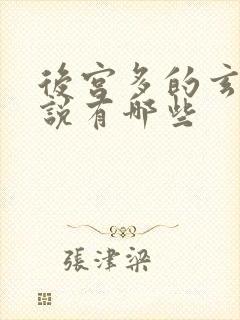 後宮多的玄
說有哪些
張津梁